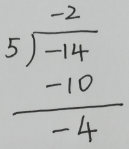 -2
5)-14
-10
-4